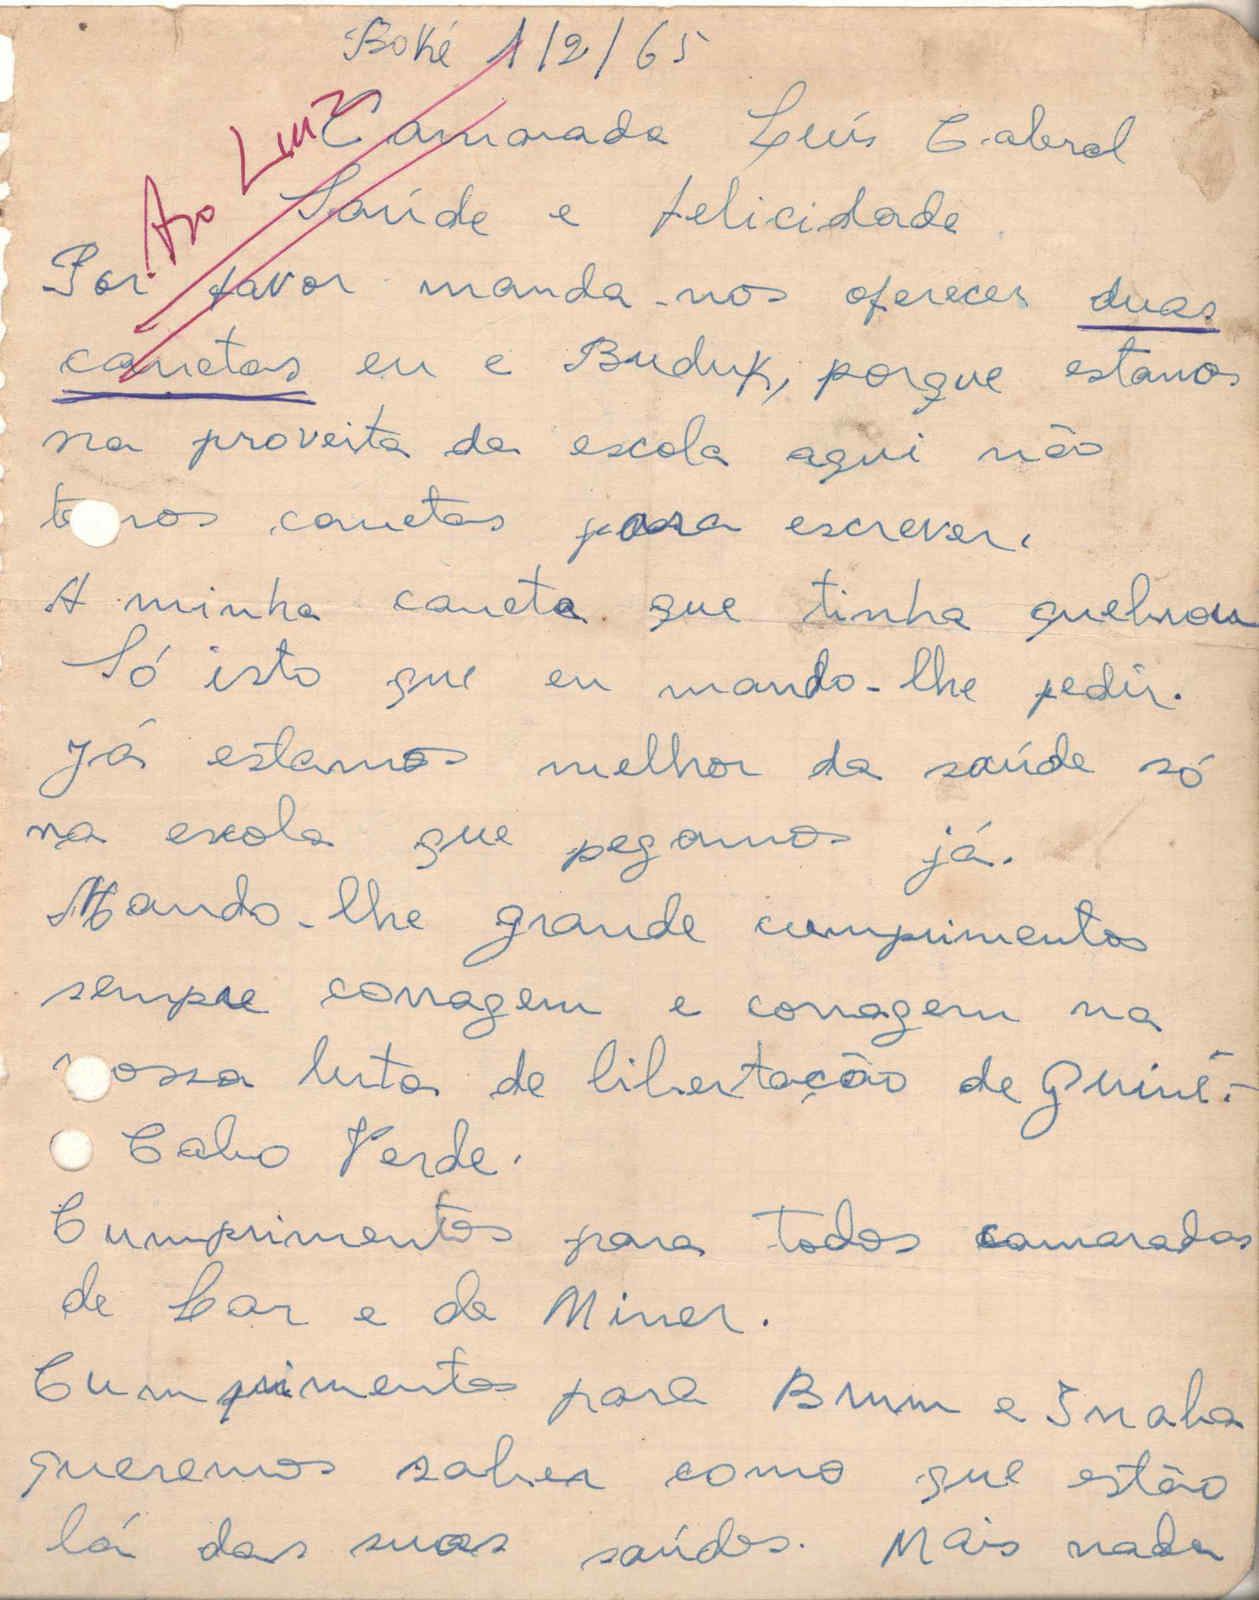 Boké 1/2/65
Ao Luiz
Camarada Luís Cabral
Saúde e felicidade.
Por favor manda-nos ofereces duas
canetas eu e Buduk, porque estamos
na proveita da escola aqui não
temos canetas para escrever.
A minha caneta que tinha quebrou
Só isto que eu mando-lhe pedir.
Já estamos melhor da saúde só
na escola que pegamos já.
Mando-lhe grande cumprimentos
sempre corragem e corragem na
nossa luta de libertação de Guiné-
Cabo Verde.
Cumprimentos para todos camaradas
de Lar e de Miner.
Cumprimentos para Brum e Inaba
queremos saber como que estão
lá das suas saúdes. Mais nada